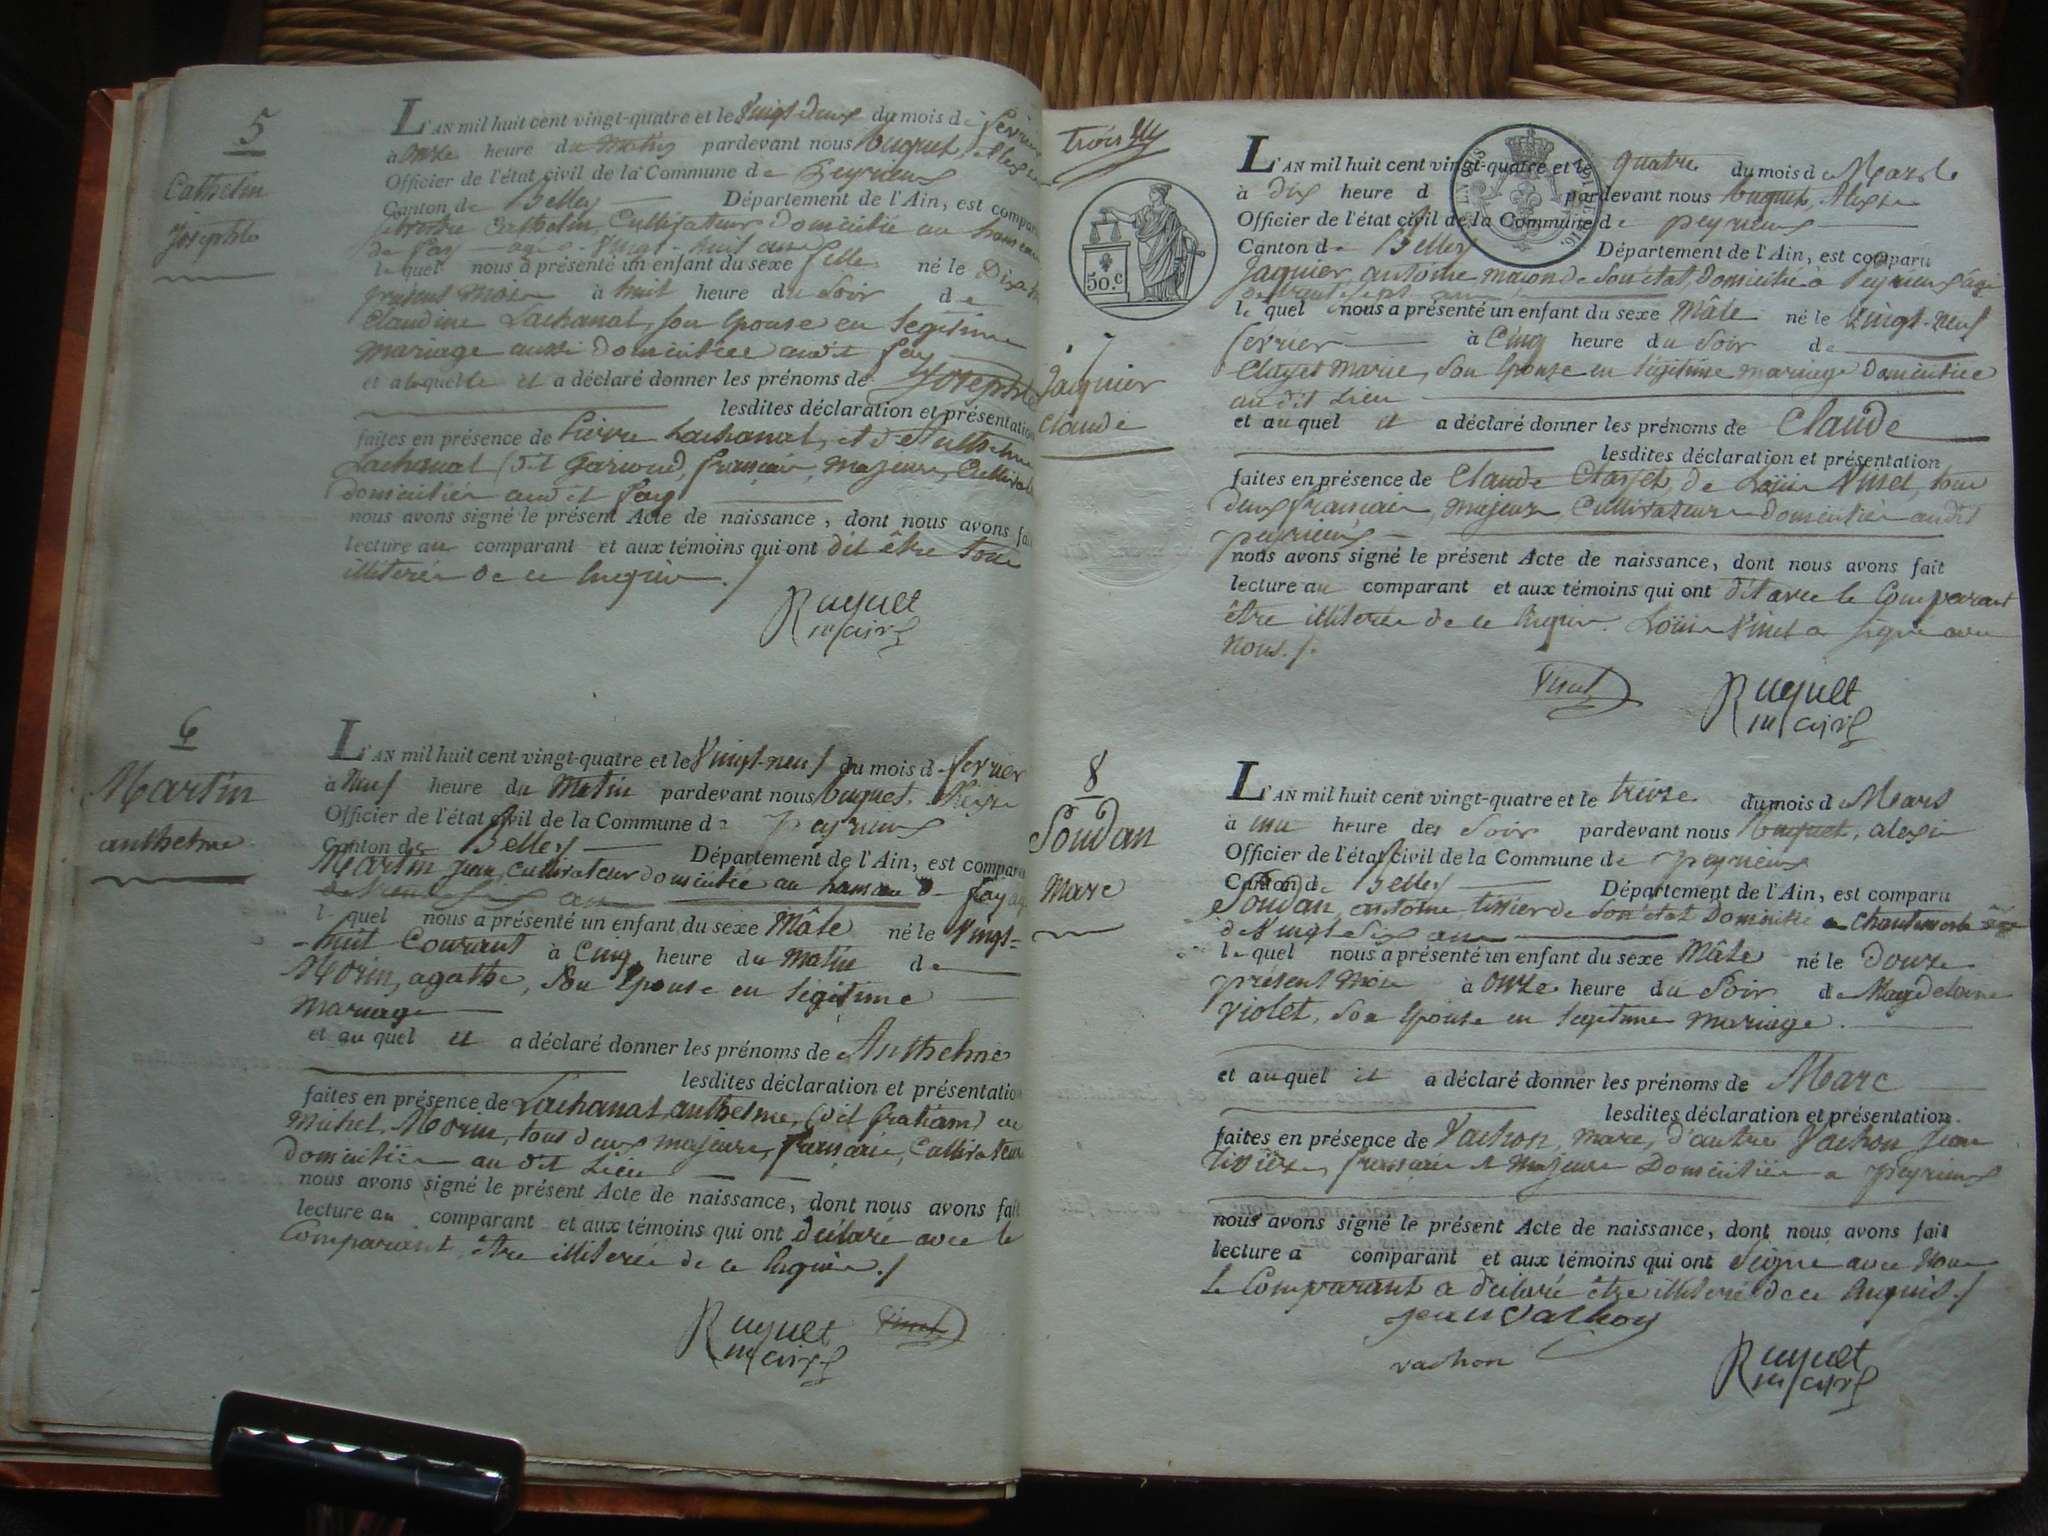 5
Cathelin
Josephte
L'AN mil huit cent vingt-quatre et le vingt-deux du mois de fevrier
à onze heure du matin pardevant nous huguet, Alexis
Officier de l'état civil de la Commune de Peyrieux
Canton de Belley Département de l'Ain, est comparu
Cathelin, Cultivateur domicilié au hameau
de fay agé vingt-huit ans
le quel nous a présenté un enfant du sexe fille né le Dix
présent mois à huit heure du Soir de
Claudine Lachanal, son Epouse en légitime
mariage aussi domiciliée audit fay
et a laquelle il a déclaré donner les prénoms de Josephte
lesdites déclaration et présentation
faites en présence de Pierre Lachanal, et d'Anthelme
Lachanal (dit français, majeurs, Cultivat
domiciliés audit fay
nous avons signé le présent Acte de naissance, dont nous avons fa
lecture au comparant et aux témoins qui ont dit être tous
illiterés de ce Enquis ./
Huguet
maire
6
Martin
anthelme
L'AN mil huit cent vingt-quatre et le Vingt-neuf du mois de fevrier
à Neuf heure du Matin pardevant nous huguet, Alexis
Officier de l'état civil de la Commune de Peyrieux
Canton de Belley Département de l'Ain, est comparu
Martin jean, Cultivateur domicilié au hameau de fay agé
de trente six ans
le quel nous a présenté un enfant du sexe Mâle né le Vingt-
-huit Courant à Cinq heure du Matin de
Morin, agathe, Son Epouse en légitime
Mariage
et au quel il a déclaré donner les prénoms de Anthelme
lesdites déclaration et présentation
faites en présence de Lachanal anthelme, (dit et
Michel Morin, tous deux majeurs, français, Cultivateurs
Domiciliés au dit Lieu
nous avons signé le présent Acte de naissance, dont nous avons fait
lecture au comparant et aux témoins qui ont déclaré avec le
Comparant, être illiterés de ce Enquis ./
Huguet
maire
Vinet
trois
50.C
7
Jaquier
Claude
L'AN mil huit cent vingt-quatre et le quatre du mois de Mars
à dix heure d pardevant nous huguet, Alexis
Officier de l'état civil de la Commune de peyrieux
Canton de Belley Département de l'Ain, est comparu
Jaquier, antoine maçon de Son état, Domicilié à Peyrieux agé
de trente sept ans
le quel nous a présenté un enfant du sexe Mâle né le Vingt-neuf
fevrier à Cinq heure du Soir de
Clarget Marie, son Epouse en légitime mariage domiciliée
au dit Lieu
et au quel il a déclaré donner les prénoms de Claude
lesdites déclaration et présentation
faites en présence de Claude Clarget, de Louis Vinet, tous
deux français, majeurs Cultivateurs domiciliés audit
peyrieux
nous avons signé le présent Acte de naissance, dont nous avons fait
lecture au comparant et aux témoins qui ont dit avec le Comparant
être illiterés de ce Enquis. Loüis Vinet a signé avec
nous ./.
Vinet
Huguet
maire
8
Soudan
Marc
L'AN mil huit cent vingt-quatre et le treize du mois de Mars
à une heure des Soir pardevant nous huguet, alexis
Officier de l'état civil de la Commune de peyrieux
Canton de Belley Département de l'Ain, est comparu
Soudan, antoine, tissier de Son état Domicilié a Chantemerle agé
de Vingt Six ans
le quel nous a présenté un enfant du sexe Mâle né le douze
présent Mois à onze heure du Soir de Magdelaine
Violet, Son Epouse en légitime Mariage.
et au quel il a déclaré donner les prénoms de Marc
lesdites déclaration et présentation
faites en présence de Vachon, marc, d'autre Vachon Jean
tissiers, français et Majeurs Domiciliés a Peyrieux
nous avons signé le présent Acte de naissance, dont nous avons fait
lecture a comparant et aux témoins qui ont Signé avec Nous
le Comparant a déclaré être illiteré de ce Enquis ./
jean Vachon
vachon
Huguet
maire